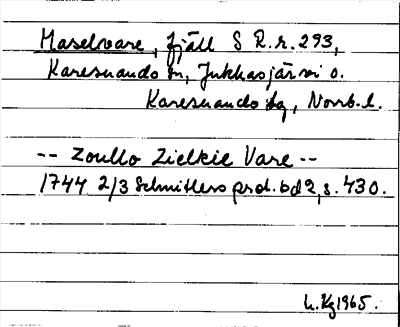 Maselvare, fjäll S R.r. 293,
Karesuando sn, Jukkasjärvi o.
Karesuando tg, Norrb. l.
-- Zoullo Zielkie Vare --
1744 2/3 Schnitlers prot. bd 2, s. 430.
1965.